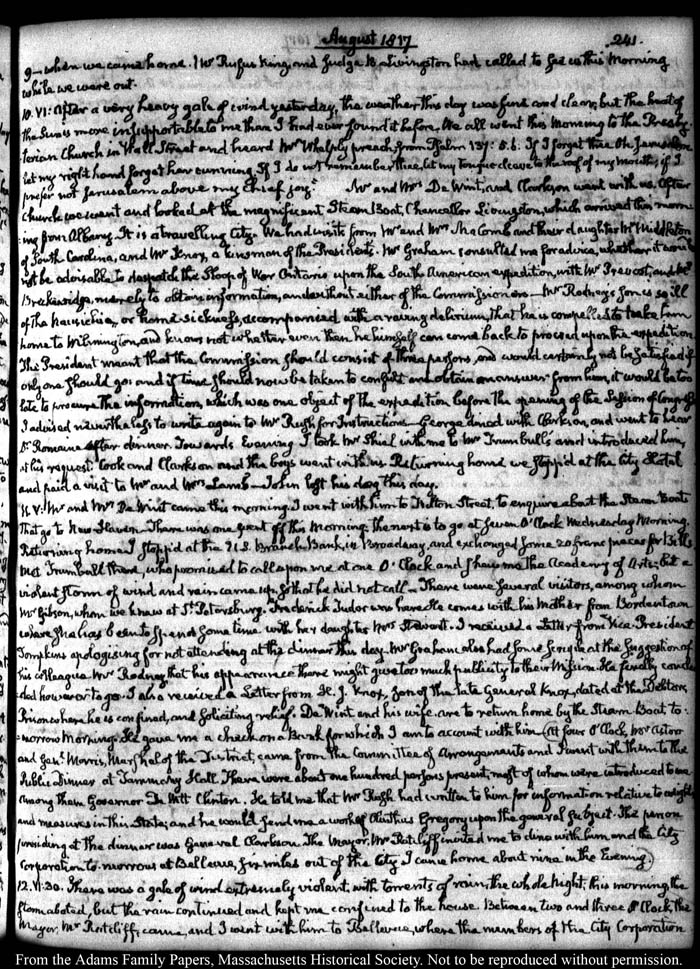 August 1817
241.
9— when we came home. Mr Rufus King, and Judge B. Livingston had called to see us this Morning
while we were out.
10. VI: After a very heavy gale of wind yesterday, the weather this day was fine and clear, but the heat of
the Sun is more insupportable to me than I had ever found it before. We all went this Morning to the Presby-
terian Church in Wall Street and heard Mr Whelply preach from Psalm 137: 5. 6. If I forget thee Oh Jerusalem
let my right hand forget her cunning. If I do not remember thee, let my tongue cleave to the roof of my mouth; if I
prefer not Jerusalem above my chief joy." Mr and Mrs De Wint, and Clarkson went with us. After
Church we went and looked at the magnificent Steam Boat, Chancellor Livingston, which arrived this morn-
ing from Albany. It is a travelling City. We had visits from Mr and Mrs and their daughter Mrs Middleton
of South Carolina, and Mr Knox, a kinsman of the President's. Mr Graham consulted me for advice, whether it would
not be advisable to despatch the Sloop of War Ontario upon the South American expedition, with Mr Prevost, and Mr
Breckenridge, merely to obtain information, and without either of the Commissioners— Mr Rodney's Son is so ill
of the or home sickness, accompanied with a raving delirium, that he is compelled to take him
home to Wilmington, and knows not whether even then he himself can come back to proceed upon the expedition.
The President meant that the Commission should consist of three persons, and would certainly not be satisfied if
only one should go: and if time should now be taken to consult and obtain an answer from him, it would be too
late to procure the information, which was one object of the expedition before the opening of the Session of Congress
I advised nevertheless to write again to Mr Rush for Instructions— George dined with Clarkson, and went to hear
Dr Romaine after dinner. Towards Evening I took Mr Shiel with me to Mr Trumbull's and introduced him,
at his request. Cook and Clarkson and the boys went with us. Returning home we stopp'd at the City Hotel
and paid a visit to Mr and Mrs Lamb— John left his dog this day.
11. V: Mr and Mrs De Wint came this morning. I went with him to Fulton Street, to enquire about the Steam Boats
that go to New-Haven. There was one went off this Morning. the next is to go at Seven O'Clock Wednesday Morning.
Returning home I stopp'd at the U.S. Branch Bank, in Broadway, and exchanged some 20 franc pieces for Bills
Met Trumbull there, who promised to call upon me at one O'Clock and shew me the Academy of Arts: but a
violent storm of wind and rain came up, so that he did not call— There were several visitors, among whom
Mr Gibson, whom we knew at St. Petersburg. Frederick Tudor who here. He comes with his Mother from Bordentown
where she has been to spend some time with her daughter Mrs Stewart. I received a Letter from Vice-President
Tompkins apologising for not attending at the dinner this day. Mr Graham also had some scruple at the suggestion of
his colleague Mr Rodney that his appearance there might give too much publicity to their Mission. He finally conclu-
ded however to go. I also received a Letter from H. J. Knox, Son of the late General Knox, dated at the Debtors
Prison where he is confined, and soliciting relief. De Wint and his wife are to return home by the Steam Boat to-
morrow Morning. He gave me a check on a Bank for which I am to account with him (At four O'Clock, Mr Astor
and Genl. Morris, Marshal of the District, came from the Committee of Arrangements and I went with them to the
Public Dinner at Tammany Hall. There were about one hundred persons present, most of whom were introduced to me.
Among them Governor De Witt Clinton. He told me that Mr Rush had written to him for information relative to weights
and measures in this State; and he would send me a work of Olinthus Gregory upon the general subject. The person
presiding at the dinner was General Clarkson. The Mayor, Mr Radcliff invited me to dine with him and the City
Corporation to-morrow at Bellevue, six miles out of the City. I came home about nine in the Evening.)
12. VI:30. There was a gale of wind extremely violent, with torrents of rain, the whole Night; this morning the
storm abated, but the rain continued and kept me confined to the house. Between two and three O'Clock the
Mayor, Mr Ratcliff, came, and I went with him to Bellevue, where the members of the City Corporation
From the Adams Family Papers, Massachusetts Historical Society. Not to be reproduced without permission.